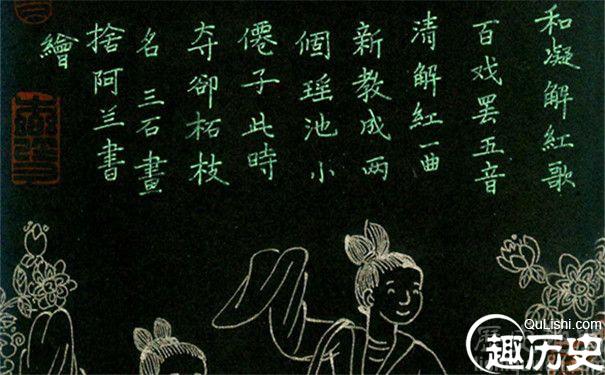 和凝解紅歌
百戏罢五音
清解紅一曲
新教成两
個瑶池小
僊子此時
夺卻柘枝
名 三石畫
捨阿兰書
繪
QuLishi.com
趣历史